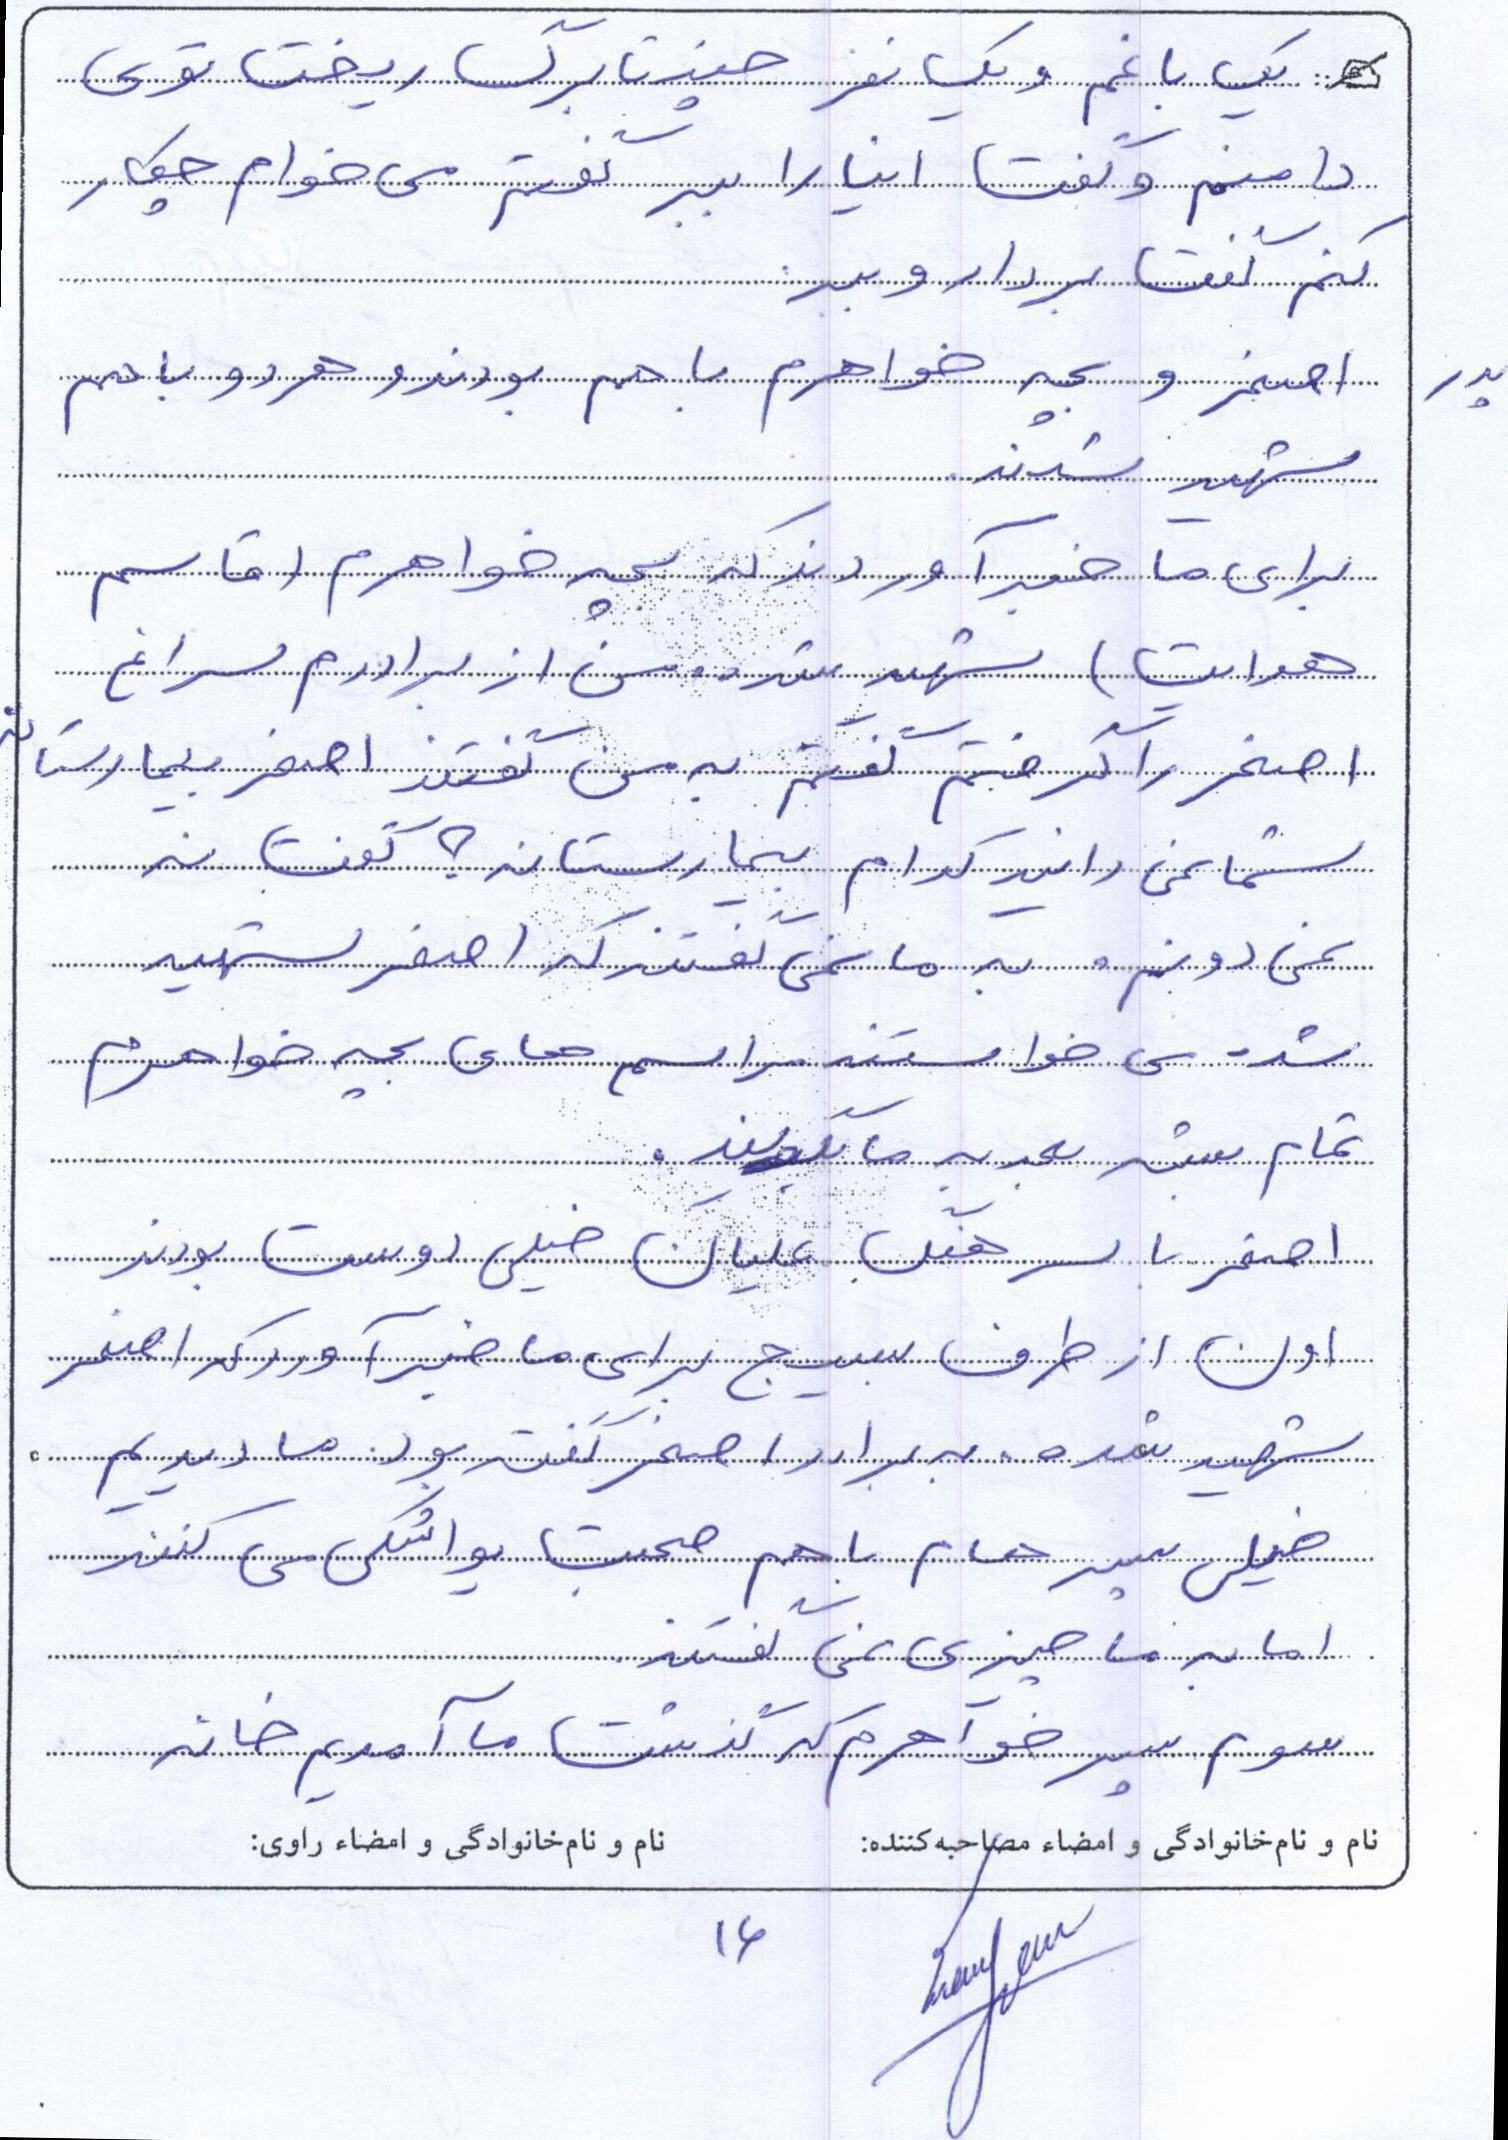 یک باغم و یک نفر چند تا برگ ریخت توی
دامنم و گفت اینا را ببر گفتم می خوام چکار
کنم گفت بردار و ببر.
پدر اصغر و بچه خواهرم با هم بودند و هر دو با هم
شهید شدند.
برای ما خبر آوردند که بچه خواهرم (قاسم
هدایت) شهید شده. من از برادرم سراغ
اصغر را گرفتم گفتم به من گفتند اصغر بیمارستانه
شما نمی دانید کدام بیمارستانه؟ گفت نه
نمی دونم. به ما نمی گفتند که اصغر شهید
شده می خواستند مراسم های بچه خواهرم
تمام بشه بعد به ما بگویند.
اصغر با سرهنگ علیان خیلی دوست بودند
اول از طرف بسیج برای ما خبر آورد که اصغر
شهید شده. به برادر اصغر گفته بود. ما دیدیم
خیلی پسرهام با هم صحبت یواشکی می کنند
اما به ما چیزی نمی گفتند.
سوم پسر خواهرم که گذشت ما آمدیم خانه
نام و نام‌خانوادگی و امضاء مصاحبه‌کننده: نام و نام‌خانوادگی و امضاء راوی:
۱۶